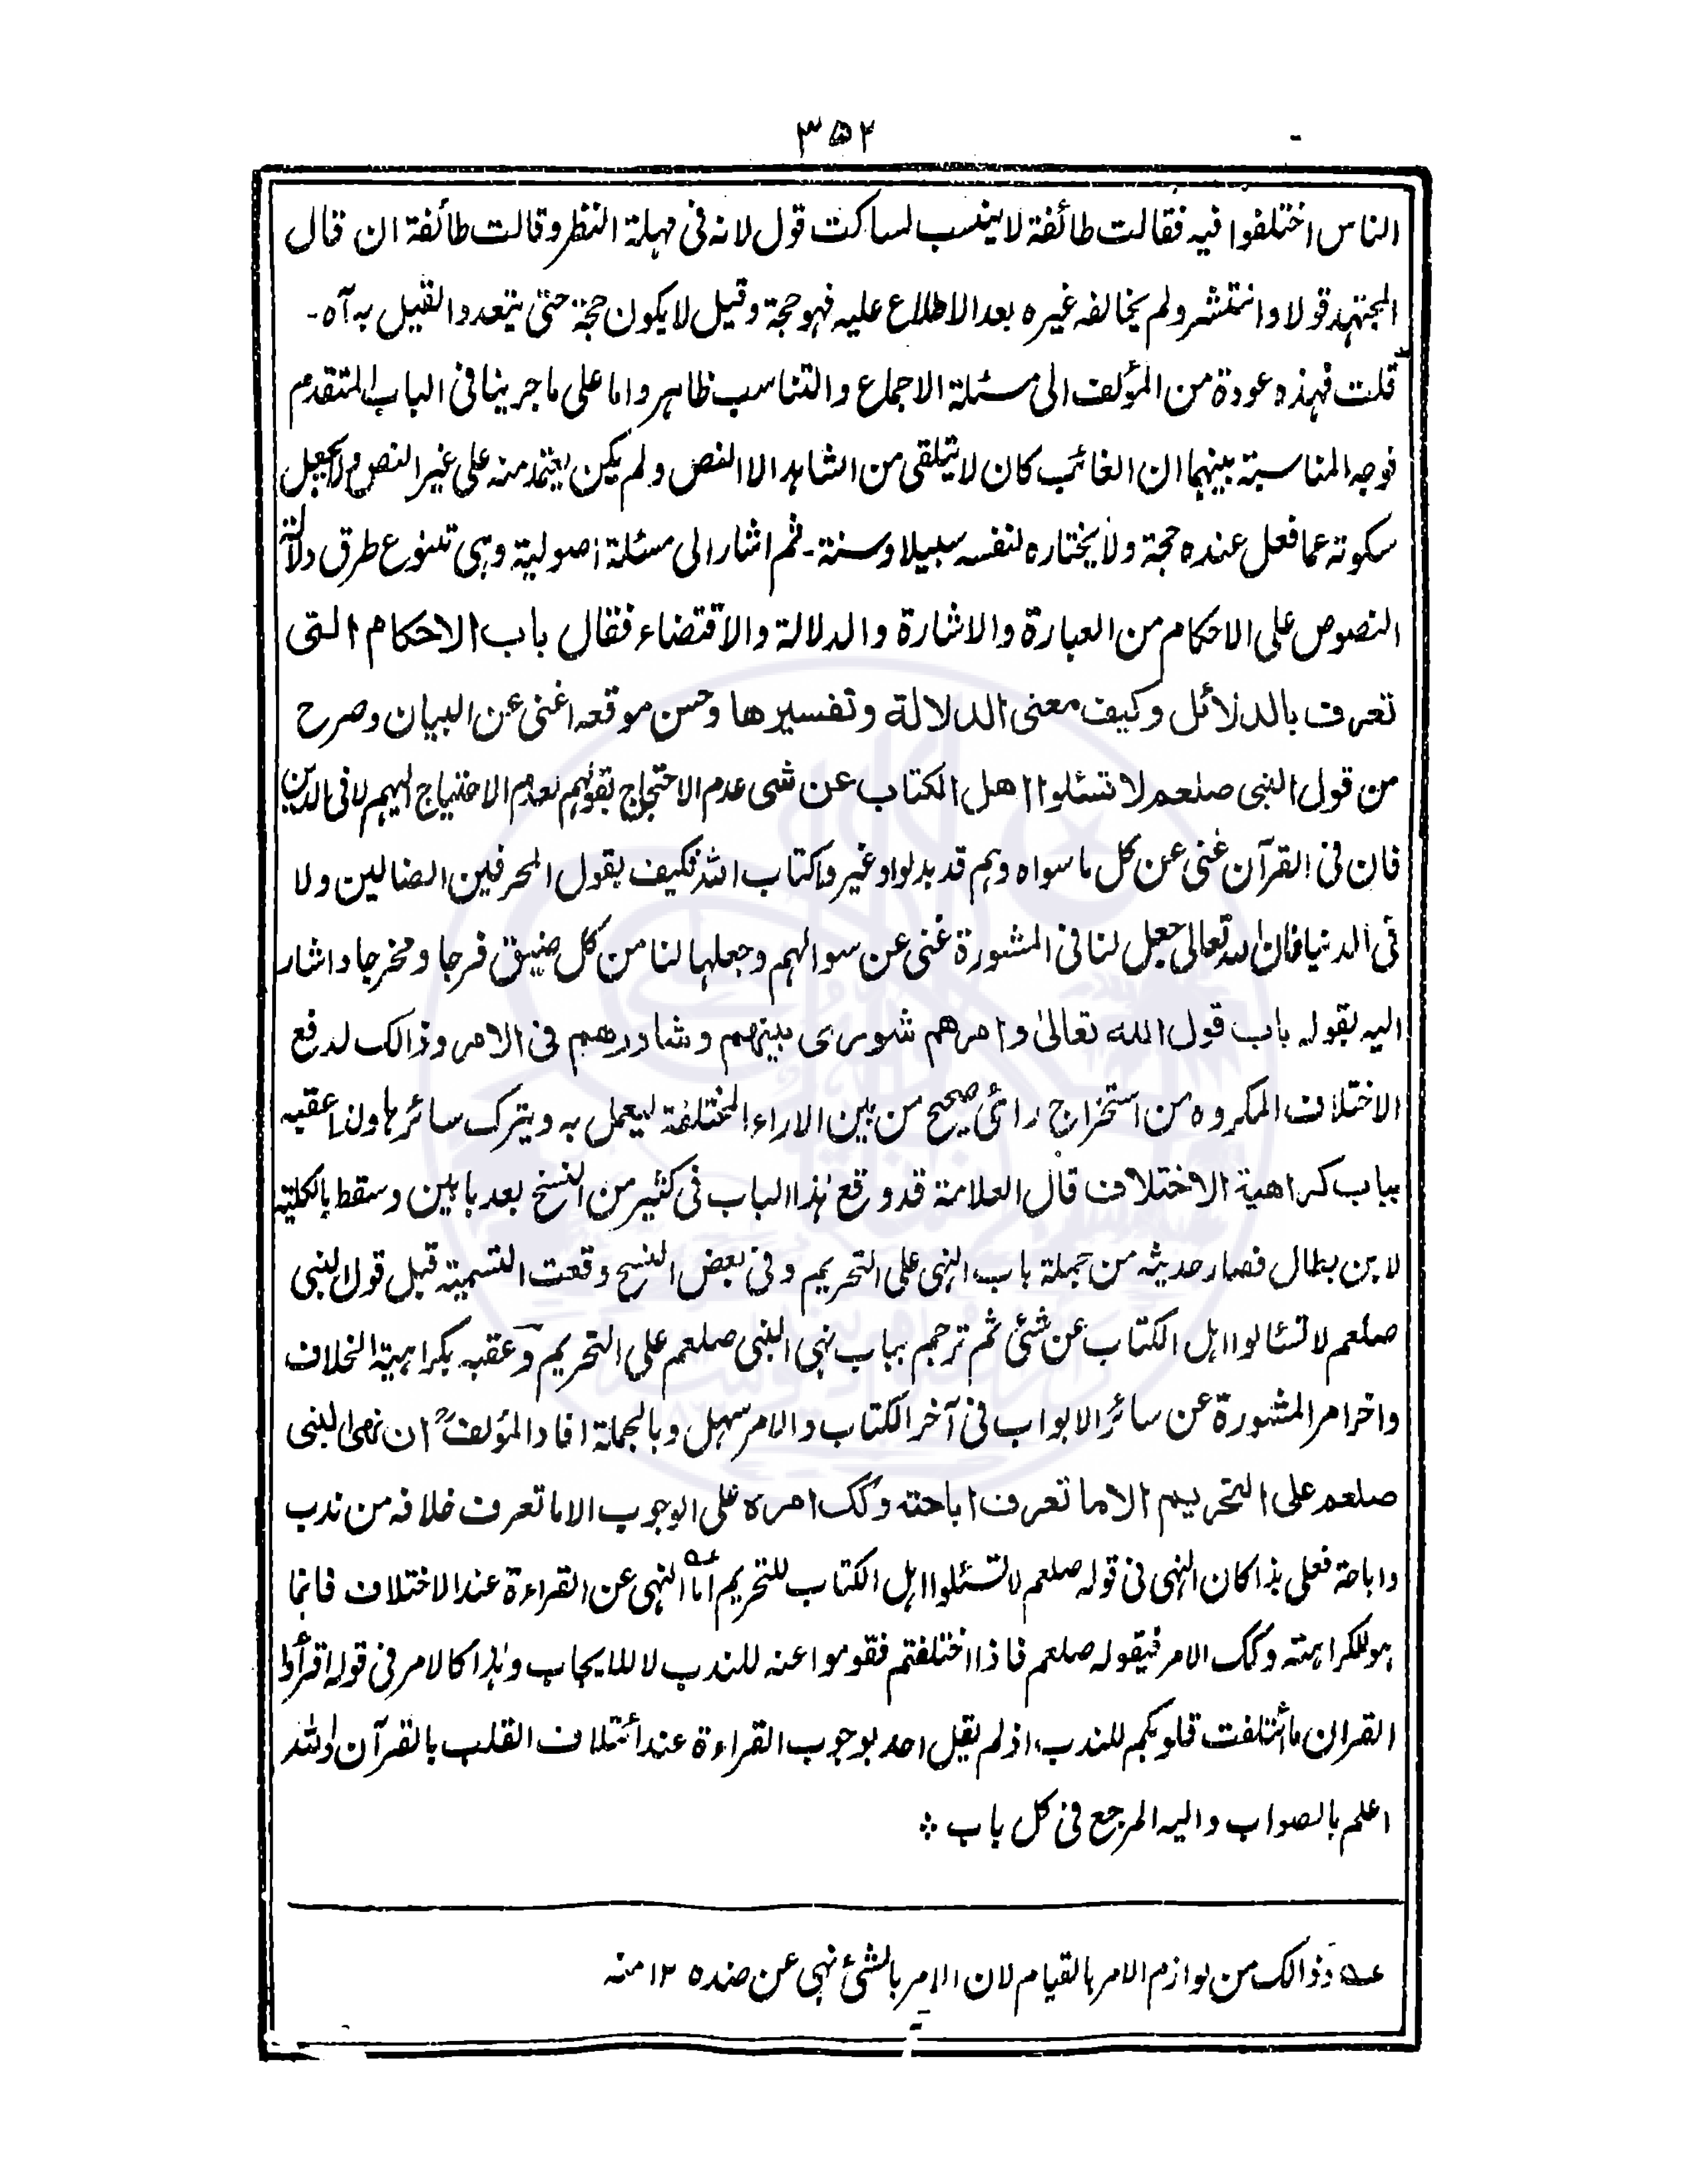 ۳۵۲
الناس اختلفوا فيه فقالت طائفة لا ينسب لساكت قول لانه فى مهلة النظر وقالت طائفة ان قال
المجتهد قولا وانتشر ولم يخالفه غيره بعد الاطلاع عليه فهو حجة وقيل لا يكون حجة حتى يتعدد القيل به آه۔
قلت فهذه عودة من المؤلف الى مسئلة الاجماع والتناسب ظاهر واما على ما جرينا فى الباب المتقدم
فوجه المناسبة بينهما ان الغائب كان لا يتلقى من الشاهد الا النص ولم يكن يعتمد منه على غير النص ولا يجعل
سكوته عما فعل عنده حجة ولا يختاره لنفسه سبيلا وسنة۔ ثم اشار الى مسئلة اصولية وهى تنوع طرق دلالة
النصوص على الاحكام من العبارة والاشارة والدلالة والاقتضاء فقال باب الاحكام التى
تعرف بالدلائل وكيف معنى الدلالة وتفسيرها وحسن موقعه اغنى عن البيان وصرح
من قول النبى صلعم لا تسئلوا اهل الكتاب عن شى عدم الاحتجاج بقولهم لعدم الاحتياج اليهم لا فى الدين
فان فى القرآن غنى عن كل ما سواه وهم قد بدلوا وغيروا كتاب الله فكيف بقول المحرفين الضالين ولا
فى الدنيا فان الله تعالى جعل لنا فى المشورة غنى عن سوالهم وجعلها لنا من كل ضيق فرجا ومخرجا واشار
اليه بقوله باب قول الله تعالىٰ وامرهم شورى بينهم وشاورهم فى الامر وذالك لدفع
الاختلاف المكروه من استخراج رائ صحيح من بين الاراء المختلفة ليعمل به ويترك سائرها ولذا عقبه
بباب كراهية الاختلاف قال العلامة قد وقع هذا الباب فى كثير من النسخ بعد بابين وسقط بالكلية
لابن بطال فصار حديثه من جملة باب النهى على التحريم وفى بعض النسخ وقعت التسمية قبل قول النبى
صلعم لا تسئالوا اهل الكتاب عن شئ ثم ترجم بباب نهى النبى صلعم على التحريم وعقبه بكراهية الخلاف
واخر امر المشورة عن سائر الابواب فى آخر الكتاب والامر سهل وبالجملة افاد المؤلفؒ ان نهى النبى
صلعم على التحريم الا ما تعرف اباحته وكك امره على الوجوب الا ما تعرف خلافه من ندب
واباحة فعلى هذا كان النهى فى قوله صلعم لا تسئلوا اهل الكتاب للتحريم اما عه النهى عن القراءة عند الاختلاف فانما
هو للكراهته وكك الامر فيقوله صلعم فاذا اختلفتم فقوموا عنه للندب لا للايجاب وهذا كالامر فى قوله اقرأوا
القران ما ائتلفت قلوبكم للندب، اذ لم يقل احد بوجوب القراءة عند ائتلاف القلب بالقرآن والله
اعلم بالصواب واليه المرجع فى كل باب ❖
عه وذالك من لوازم الامر بالقيام لان الامر بالشئ نهى عن ضده ۱۲ منه